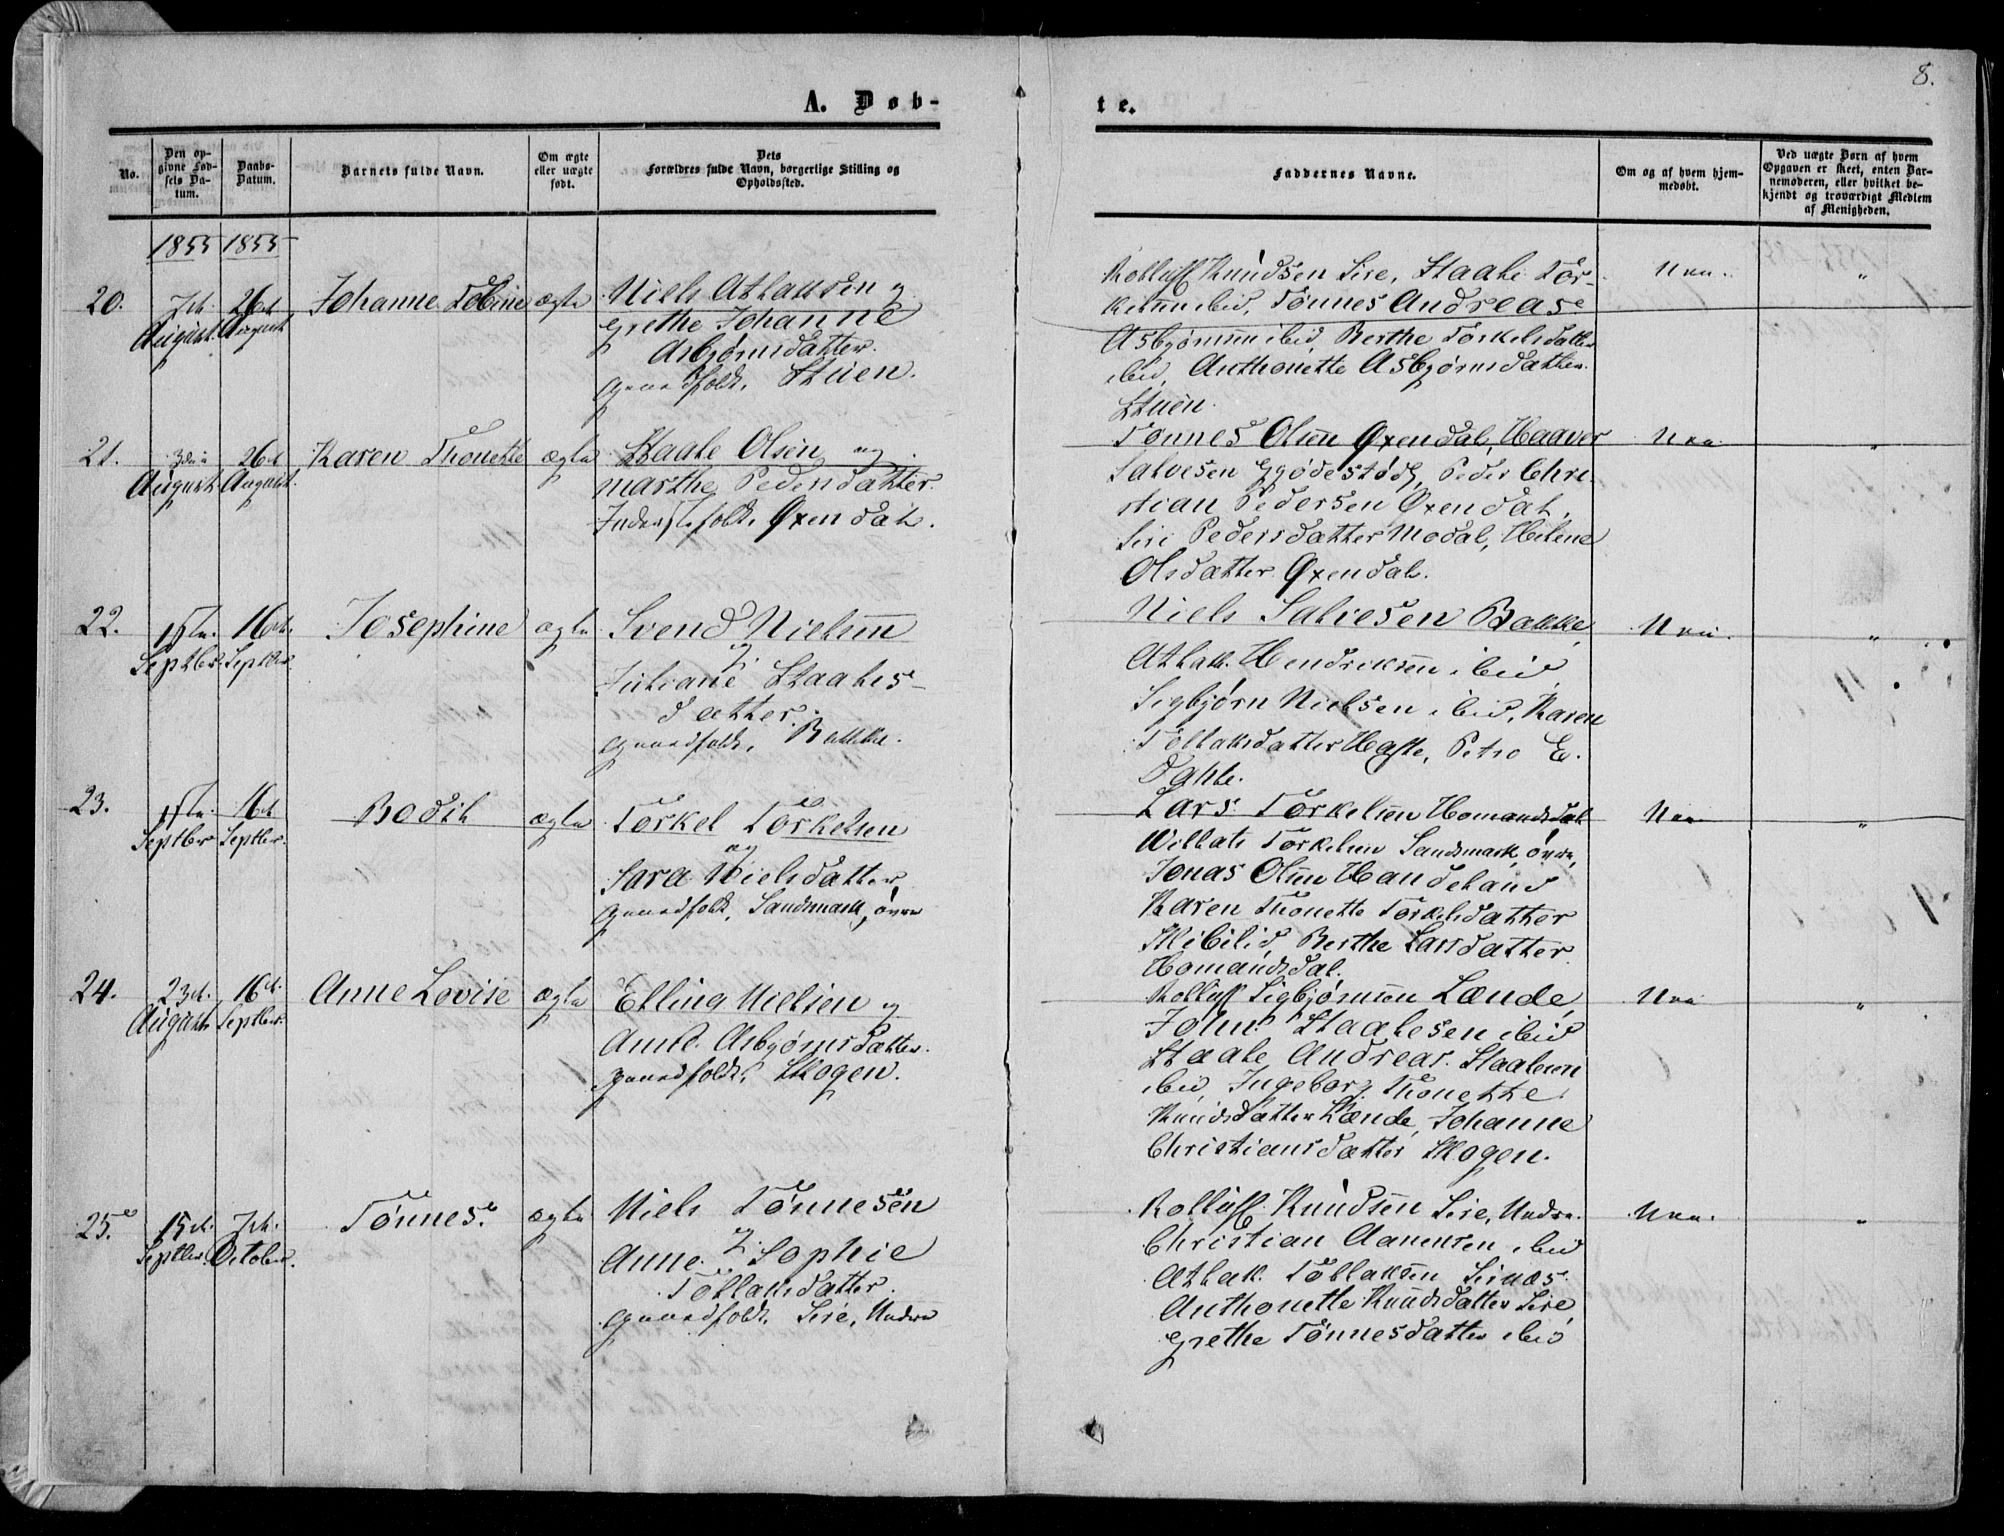 8.
A. Døb-
te.
No.
Den op-
givne Fød-
sels Da-
tum.
Daabs-
Datum.
Barnets fulde Navn.
Om ægte
eller uægte
født.
Dets
Forældres fulde Navn, borgerlige Stilling og
Opholdssted.
Faddernes Navne.
Om og af hvem hjem-
medøbt.
Ved uægte Børn af hvem
Opgaven er skeet, enten Bar-
nemoderen, eller hvilket be-
kjendt og troværdigt Medlem
af Menigheden.
1855 1855
20.
7de
August
26de
August
Johanne Tobine
ægte
Niels Atlaksen og
Grethe Johanne
Asbjørnsdatter.
Gaardfolk, Stuen.
Rolluff Knudsen Sire, Staale Tor-
kelsen ibid, Tønnes Andreas
Asbjørnsen ibid Berthe Torkelsdatter
ibid, Anthonette Asbjørnsdatter
Stuen.
21.
3die
August
26de
August.
Karen Thonette
ægte
Staale Olsen og
Marthe Pedersdatter.
Inderstefolk, Øxendal.
Tønnes Olsen Øxendal, Haaver
Salvesen Gjødestød, Peder Chri-
stian Pedersen Øxendal,
Siri Pedersdatter Modal, Helene
Olsdatter Øxendal.
22.
Septbr.
16de
Septbr.
Josephine
ægte
Svend Nielsen
og
Juliane Staales-
datter.
Gaardfolk, Bakke.
Niels Salvesen Bakke
Atlak Hendriksen ibid
Sigbjørn Nielsen ibid, Karen
Tollaksdatter Hafte, Petro E.
Dahle.
23.
Septbr
16de
Septbr.
Bodil
ægte
Torkel Torkelsen
og
Sara Nielsdatter
Gaardfolk, Sandsmark, øvre
Lars Torkelsen Homandsdal
Willats Torkelsen Sandsmark, øvre,
Jonas Olsen Handeland
Karen Thonette Torkelsdatter
Skibilid, Berthe Larsdatter
Homandsdal.
24.
23de.
August
16de.
Septbr.
Anne Lovise
ægte
Elling Nielsen og
Anne Asbjørnsdatter.
Gaardfolk, Skogen.
Rolluff Sigbjørnsen Lænde,
John Staalesen ibid
Staale Andreas Staalesen
ibid, Ingeborg Thonette
Knudsdatter Lænde, Johanne
Christiansdatter Skogen.
25.
15de.
Septbr.
7de.
October.
Tønnes.
ægte
Niels Tønnesen
og
Anne Sophie
Tollaksdatter.
Gaardfolk, Sire, Nedre
Rolluff Knudsen Sire, Nedre.
Christian Aanensen ibid
Atlak Tollaksen Sirnæs.
Anthonette Knudsdatter Sire
Grethe Tønnesdatter ibid